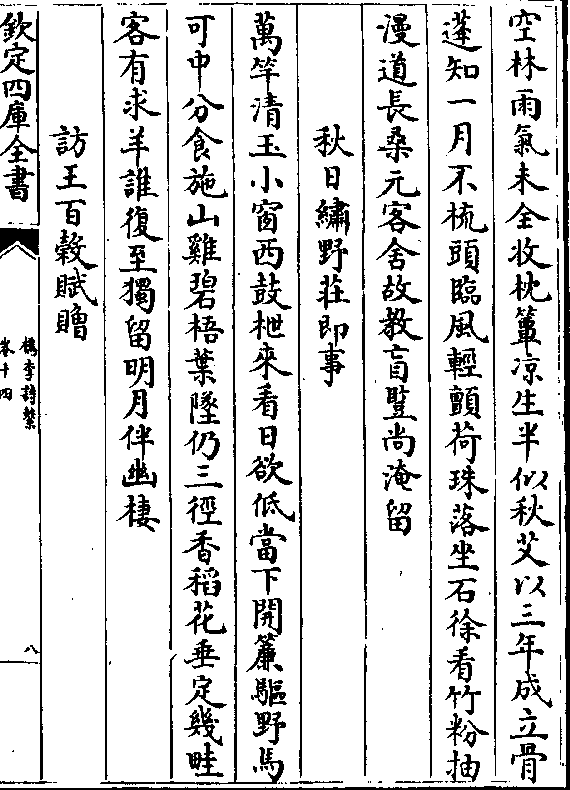 空林雨氣未全收枕簟凉生半似秋艾以三年成立骨
蓬知一月不梳頭臨風輕顫荷珠落坐石徐看竹粉抽
漫道長桑元客舍故教盲豎尚淹留
秋日繡野莊即事
萬竿清玉小窗西鼓枻來看日欲低當下開簾驅野馬
可中分食施山雞碧梧葉墜仍三徑香稻花垂定幾畦
客有求羊誰復至獨留明月伴幽棲
訪王百榖賦贈
欽定四庫全書
檇李詩繫
卷十四
八